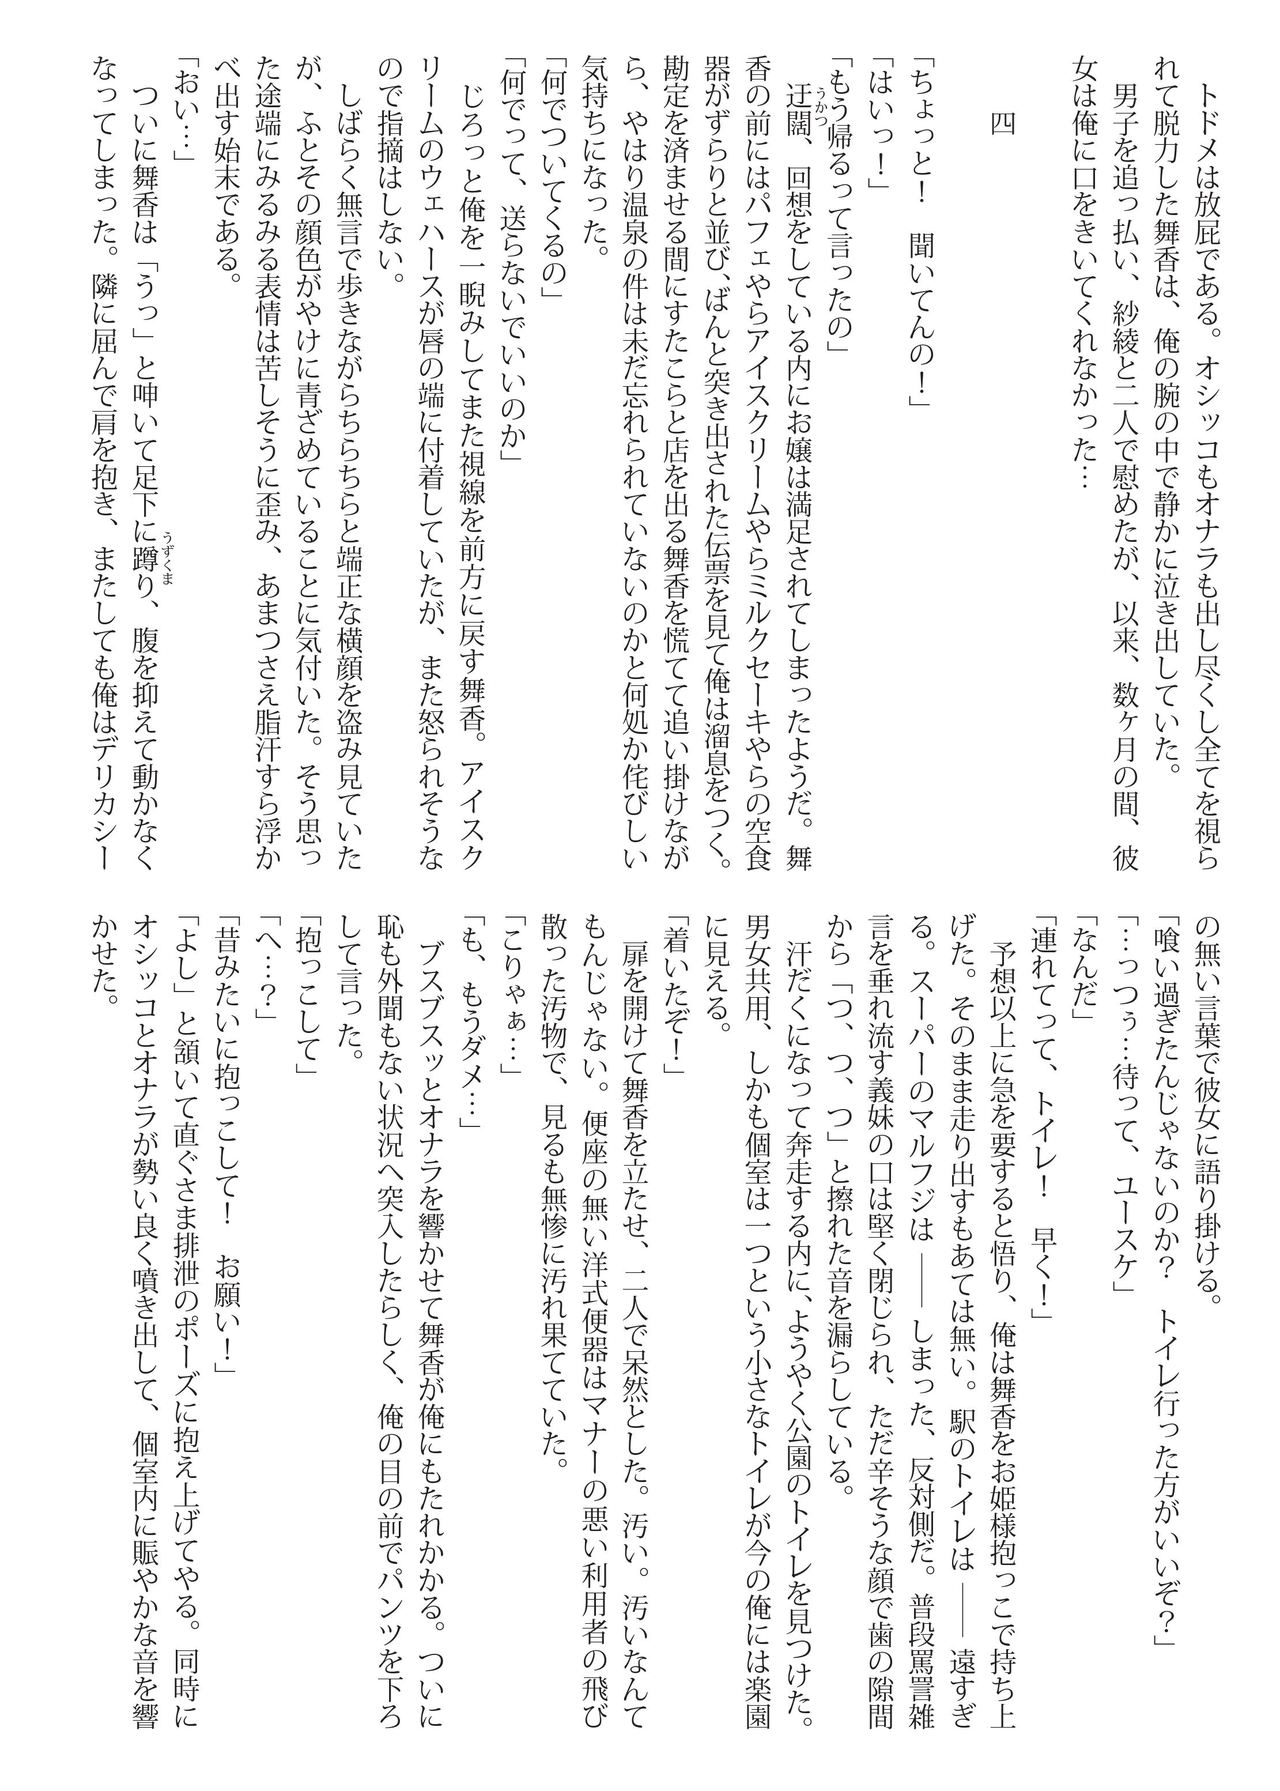 トドメは放屁である。オシッコもオナラも出し尽くし全てを視ら
れて脱力した舞香は、俺の腕の中で静かに泣き出していた。
男子を追っ払い、紗綾と二人で慰めたが、以来、数ヶ月の間、彼
女は俺に口をきいてくれなかった…
四
「ちょっと！　聞いてんの！」
「はいっ！」
「もう帰るって言ったの」
迂闊、回想をしている内にお嬢は満足されてしまったようだ。舞
うかつ
香の前にはパフェやらアイスクリームやらミルクセーキやらの空食
器がずらりと並び、ばんと突き出された伝票を見て俺は溜息をつく。
勘定を済ませる間にすたこらと店を出る舞香を慌てて追い掛けなが
ら、やはり温泉の件は未だ忘れられていないのかと何処か侘びしい
気持ちになった。
「何でついてくるの」
「何でって、送らないでいいのか」
じろっと俺を一睨みしてまた視線を前方に戻す舞香。アイスク
リームのウェハースが唇の端に付着していたが、また怒られそうな
ので指摘はしない。
しばらく無言で歩きながらちらちらと端正な横顔を盗み見ていた
が、ふとその顔色がやけに青ざめていることに気付いた。そう思っ
た途端にみるみる表情は苦しそうに歪み、あまつさえ脂汗すら浮か
べ出す始末である。
「おい…」
ついに舞香は「うっ」と呻いて足下に蹲り、腹を抑えて動かなく
うずくま
なってしまった。隣に屈んで肩を抱き、またしても俺はデリカシー
の無い言葉で彼女に語り掛ける。
「喰い過ぎたんじゃないのか？　トイレ行った方がいいぞ？」
「…っつぅ…待って、ユースケ」
「なんだ」
「連れてって、トイレ！　早く！」
予想以上に急を要すると悟り、俺は舞香をお姫様抱っこで持ち上
げた。そのまま走り出すもあては無い。駅のトイレは――遠すぎ
る。スーパーのマルフジは――しまった、反対側だ。普段罵詈雑
言を垂れ流す義妹の口は堅く閉じられ、ただ辛そうな顔で歯の隙間
から「つ、つ、つ」と擦れた音を漏らしている。
汗だくになって奔走する内に、ようやく公園のトイレを見つけた。
男女共用、しかも個室は一つという小さなトイレが今の俺には楽園
に見える。
「着いたぞ！」
扉を開けて舞香を立たせ、二人で呆然とした。汚い。汚いなんて
もんじゃない。便座の無い洋式便器はマナーの悪い利用者の飛び
散った汚物で、見るも無惨に汚れ果てていた。
「こりゃぁ…」
「も、もうダメ…」
ブスブスッとオナラを響かせて舞香が俺にもたれかかる。ついに
恥も外聞もない状況へ突入したらしく、俺の目の前でパンツを下ろ
して言った。
「抱っこして」
「へ…？」
「昔みたいに抱っこして！　お願い！」
「よし」と頷いて直ぐさま排泄のポーズに抱え上げてやる。同時に
オシッコとオナラが勢い良く噴き出して、個室内に賑やかな音を響
かせた。